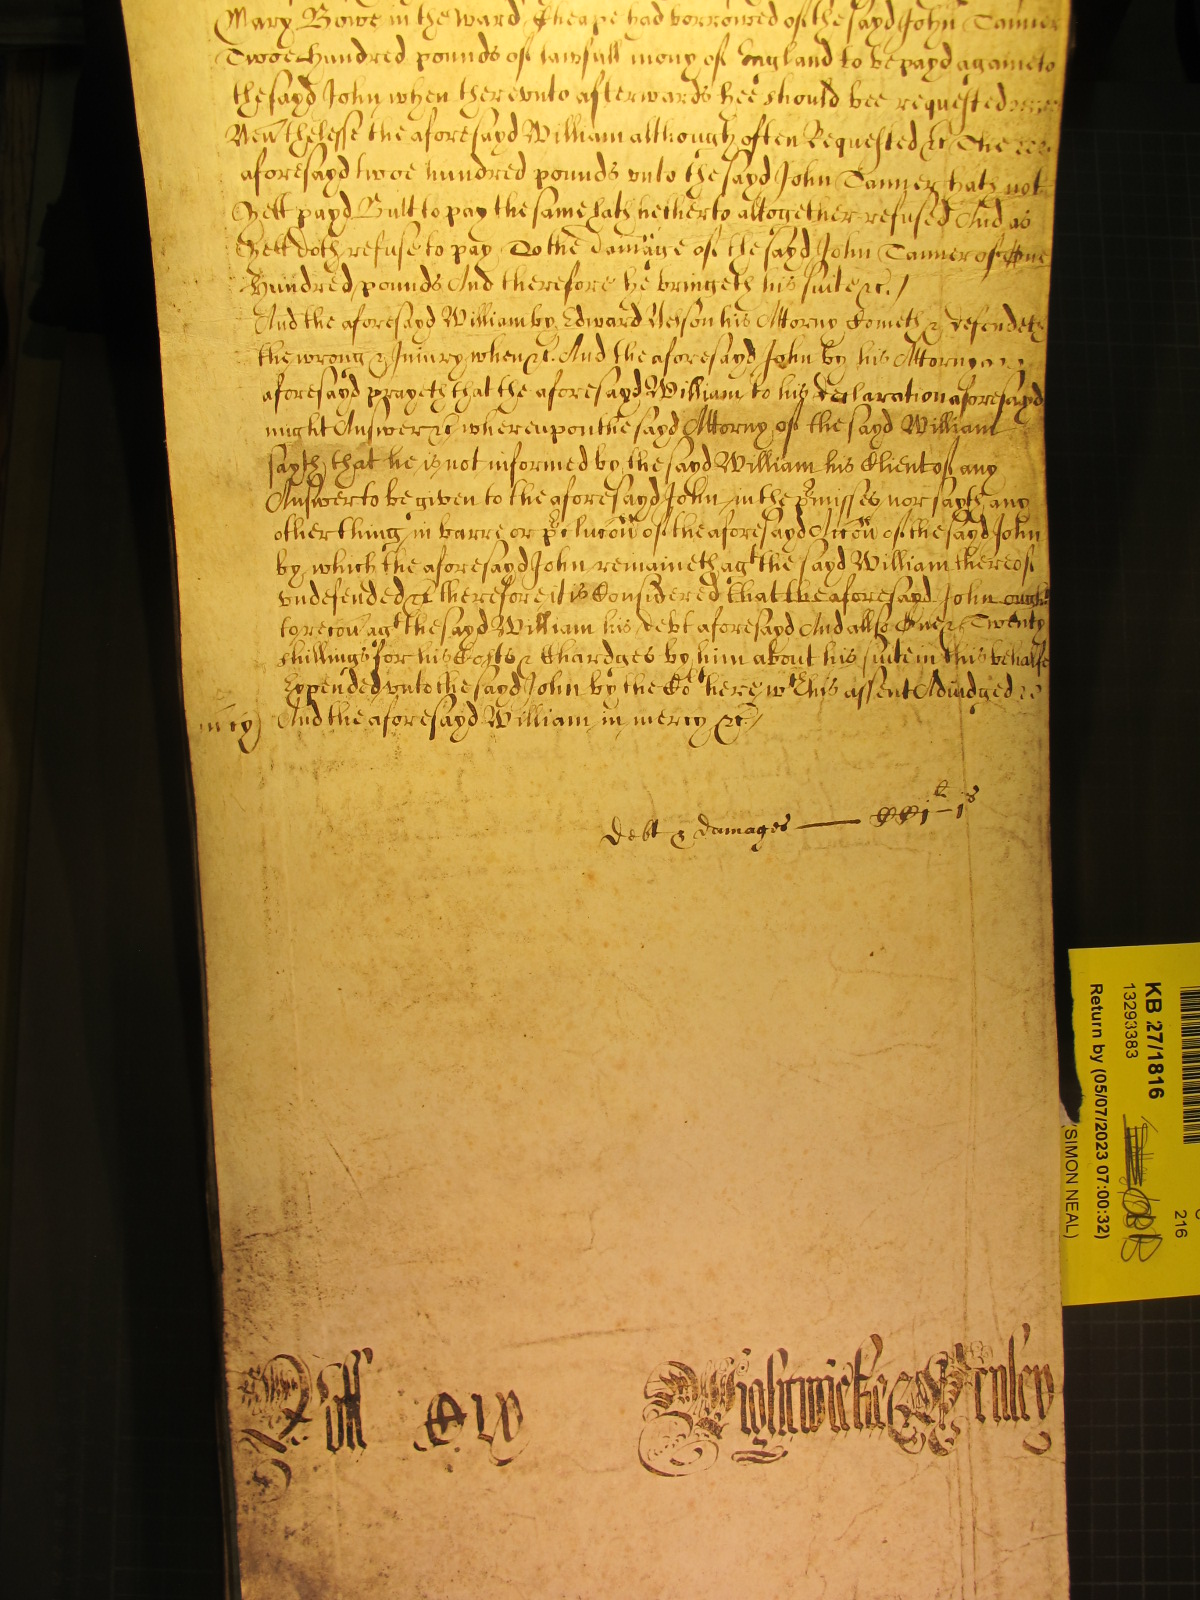 Mary Bowe in the Ward Cheape had borrowed of the sayd John Tanner
Twoe hundred pounds of lawfull mony of England to be payd againe to
the sayd John when therevnto afterwards hee should bee requested
Nevthelesse the aforesayd William although often Requested &c The
aforesayd twoe hundred pounds vnto the sayd John Tanner hath not
Yett payd Butt to pay the same hath hetherto altogether refused And as
Yett doth refuse to pay To the damage of the sayd John Tanner of One
Hundred pounds And therefore he bringeth his suite &c. /
And the aforesayd William by Edward Nelson his Attorny Cometh & defendeth
the wrong & Iniury when &c. And the aforesayd John by his Attorny
aforesayd prayeth that the aforesayd William to his declaration aforesayd
might Answer &c whereupon the sayd Attorny of the sayd William
sayth that he is not informed by the sayd William his Client of any
Answer to be given to the aforesayd John in the pmisses nor sayth any
other thing in barre or pclucōn of the aforesayd Accōn of the sayd John
by which the aforesayd John remaineth agt the sayd William thereof
vndefended &c therefore it is Considered that the aforesayd John ought
to recov agt the sayd William his debt aforesayd And allso One & Twenty
shillings for his Costs & Chardges by him about his suite in this behalfe
Expended vnto the sayd John by the Cot here wth his assent Adiudged
mcy) And the aforesayd William in mercy &c /
Debt & damages — CCj li – js
Wightwicke & Henley
KB 27/1816
13293383
Return by (05/07/2023 07:00:32)
SIMON NEAL)
216